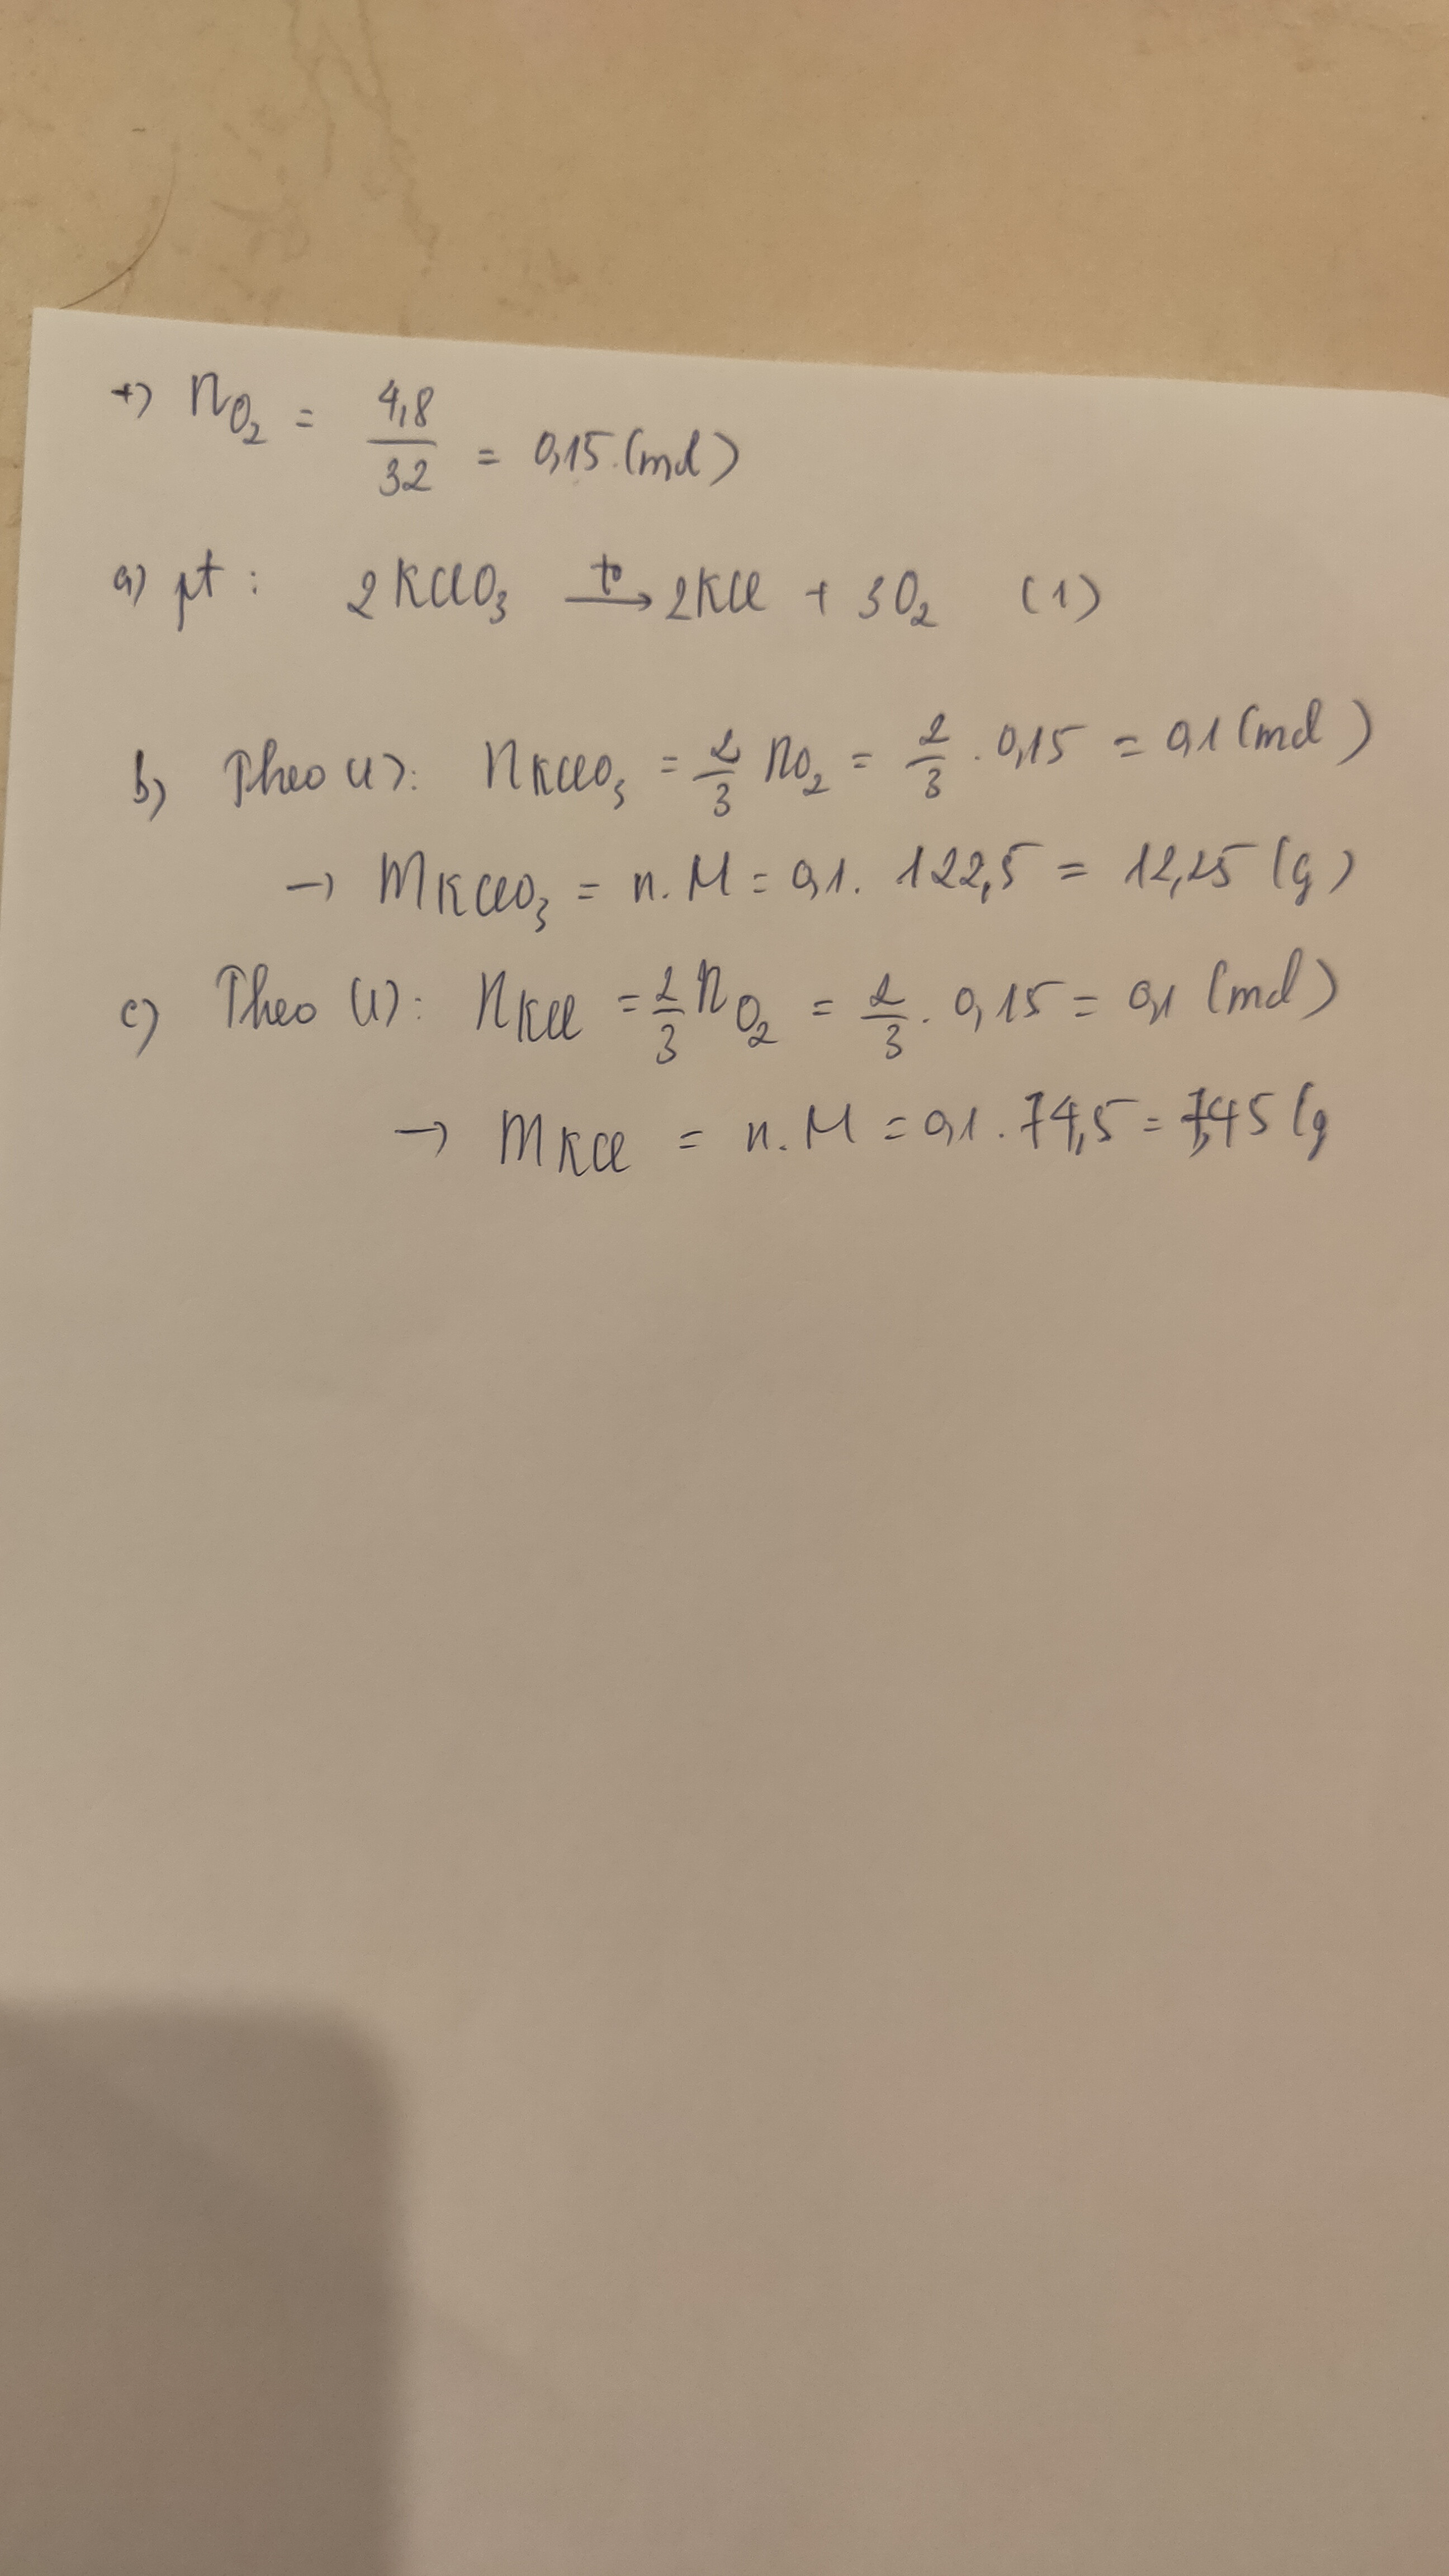 +) nO₂ = 4,8/32 = 0,15 (mol)
a) pt : 2KClO₃ —t°→ 2KCl + 3O₂ (1)
b) Theo (1): nKClO₃ = 2/3 nO₂ = 2/3 . 0,15 = 0,1 (mol)
→ mKClO₃ = n.M = 0,1. 122,5 = 12,25 (g)
c) Theo (1): nKCl = 2/3 nO₂ = 2/3 . 0,15 = 0,1 (mol)
→ mKCl = n.M = 0,1 . 74,5 = 7,45 (g